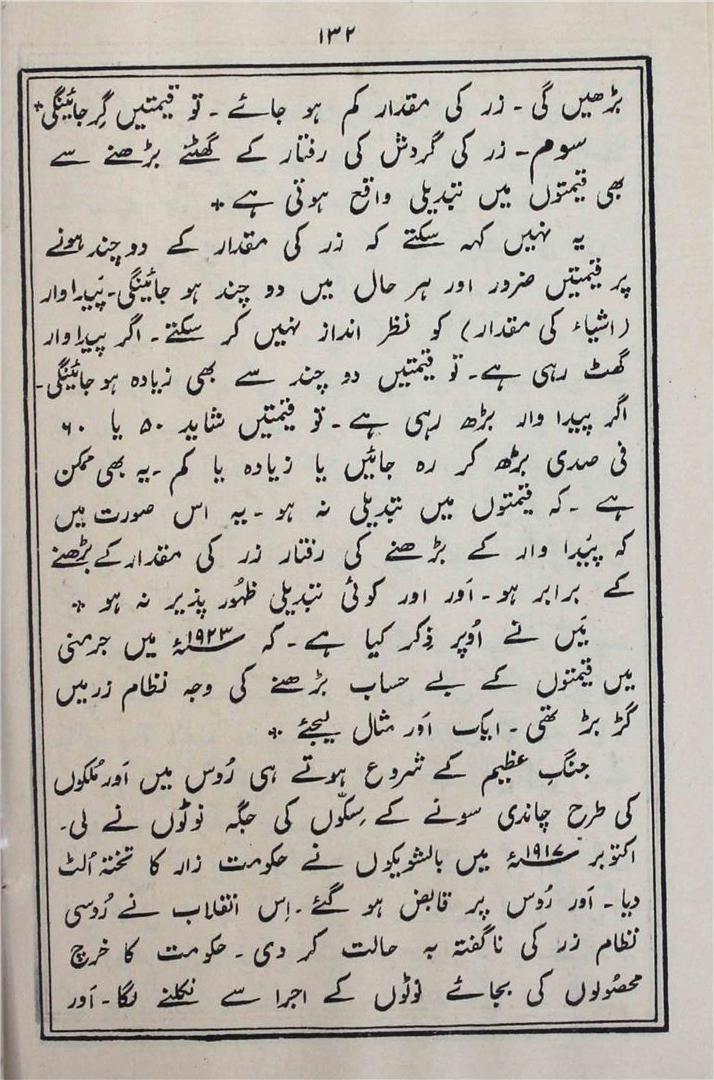 ۱۳۲
بڑھیں گی - زر کی مقدار کم ہو جائے - تو قیمتیں گِرجائینگی *
سوم - زر کی گردش کی رفتار کے گھٹنے بڑھنے سے
بھی قیمتوں میں تبدیلی واقع ہوتی ہے *
یہ نہیں کہہ سکتے کہ زر کی مقدار کے دوچند ہونے
پر قیمتیں ضرور اور ہر حال میں دو چند ہو جائینگی - پَیداوار
(اشیاء کی مقدار) کو نظر انداز نہیں کر سکتے - اگر پیداوار
گھٹ رہی ہے - تو قیمتیں دو چند سے بھی زیادہ ہو جائینگی -
اگر پیدا وار بڑھ رہی ہے - تو قیمتیں شاید ۵۰ یا ۶۰
فی صدی بڑھ کر رہ جائیں یا زیادہ یا کم - یہ بھی ممکن
ہے - کہ قیمتوں میں تبدیلی نہ ہو - یہ اس صورت میں
کہ پَیدا وار کے بڑھنے کی رفتار زر کی مقدار کے بڑھنے
کے برابر ہو - اَور اور کوئی تبدیلی ظہُور پذیر نہ ہو *
مَیں نے اُوپر ذِکر کیا ہے - کہ ۱۹۲۳ء میں جرمنی
میں قیمتوں کے بے حساب بڑھنے کی وجہ نظام زر میں
گڑ بڑ تھی - ایک اَور مثال لیجئے *
جنگِ عظیم کے شروع ہوتے ہی رُوس میں اَور مُلکوں
کی طرح چاندی سونے کے سِکّوں کی جگہ نوٹوں نے لی -
اکتوبر ۱۹۱۷ء میں بالشویکوں نے حکومت زار کا تختہ اُلٹ
دیا - اَور رُوس پر قابض ہو گئے - اِس انقلاب نے رُوسی
نظام زر کی ناگفتہ بہ حالت کر دی - حکومت کا خرچ
محصُولوں کی بجائے نوٹوں کے اجرا سے نکلنے لگا - اَور